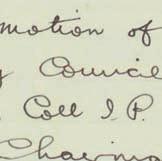 motion of
Council
Coll I.P.
Chairma